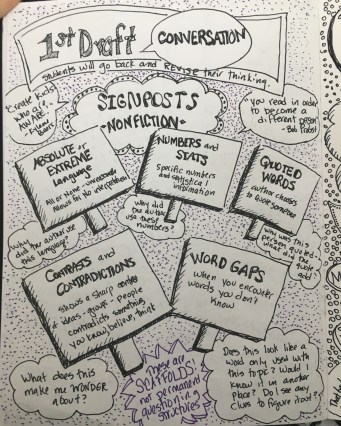 1st Draft
CONVERSATION
Students will go back and Revise their thinking.
"Create kids
who are
AWARE."
SIGNPOSTS
-NONFICTION-
"you read in order
to become a
different person"
-Bob Probst
ABSOLUTE or
EXTREME
Language
All or None - unreasonable
NUMBERS and
STATS
Specific numbers
and statistical
information
QUOTED
WORDS
author chooses
to quote someone
Why
did the author use
this language?
Why did
the author
use these
numbers?
Why was this
person quoted-
what did the
quote
add?
CONTRASTS and
CONTRADICTIONS
Shows a sharp
ideas - people
contradicts something
you know, believe, think
WORD GAPS
When you encounter
words you don't
know
What does this
make me WONDER
about?
These are
SCAFFOLDS:
not permanent
questioning
structures
Does this look like a
word only used with
this topic? Would I
know it in another
place? Do I see any
clues to figure it out?